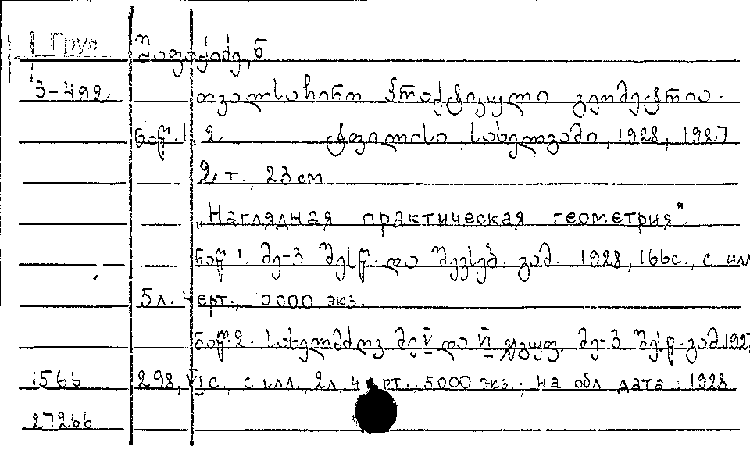 Груз
3-492.
თვალსაჩინო პრაქტიკული გეომეტრია.
ნაწ. 1, 2. ტფილისი, სახელგამი, 1928, 1927
2 т. 23 см
„Наглядная практическая геометрия"
ნაწ 1. მე-3 შესწ. და შევსებ. გამ. 1928, 166с., с илл
5л. черт., 5000 экз.
ნაწ. 2. სახელმძღვ. მე V და VI ჯგუფ. მე-3 შესწ. გამ. 1927
1566 298, VI с., с илл., 2л. черт., 5000 экз. На обл дата: 1928
27266